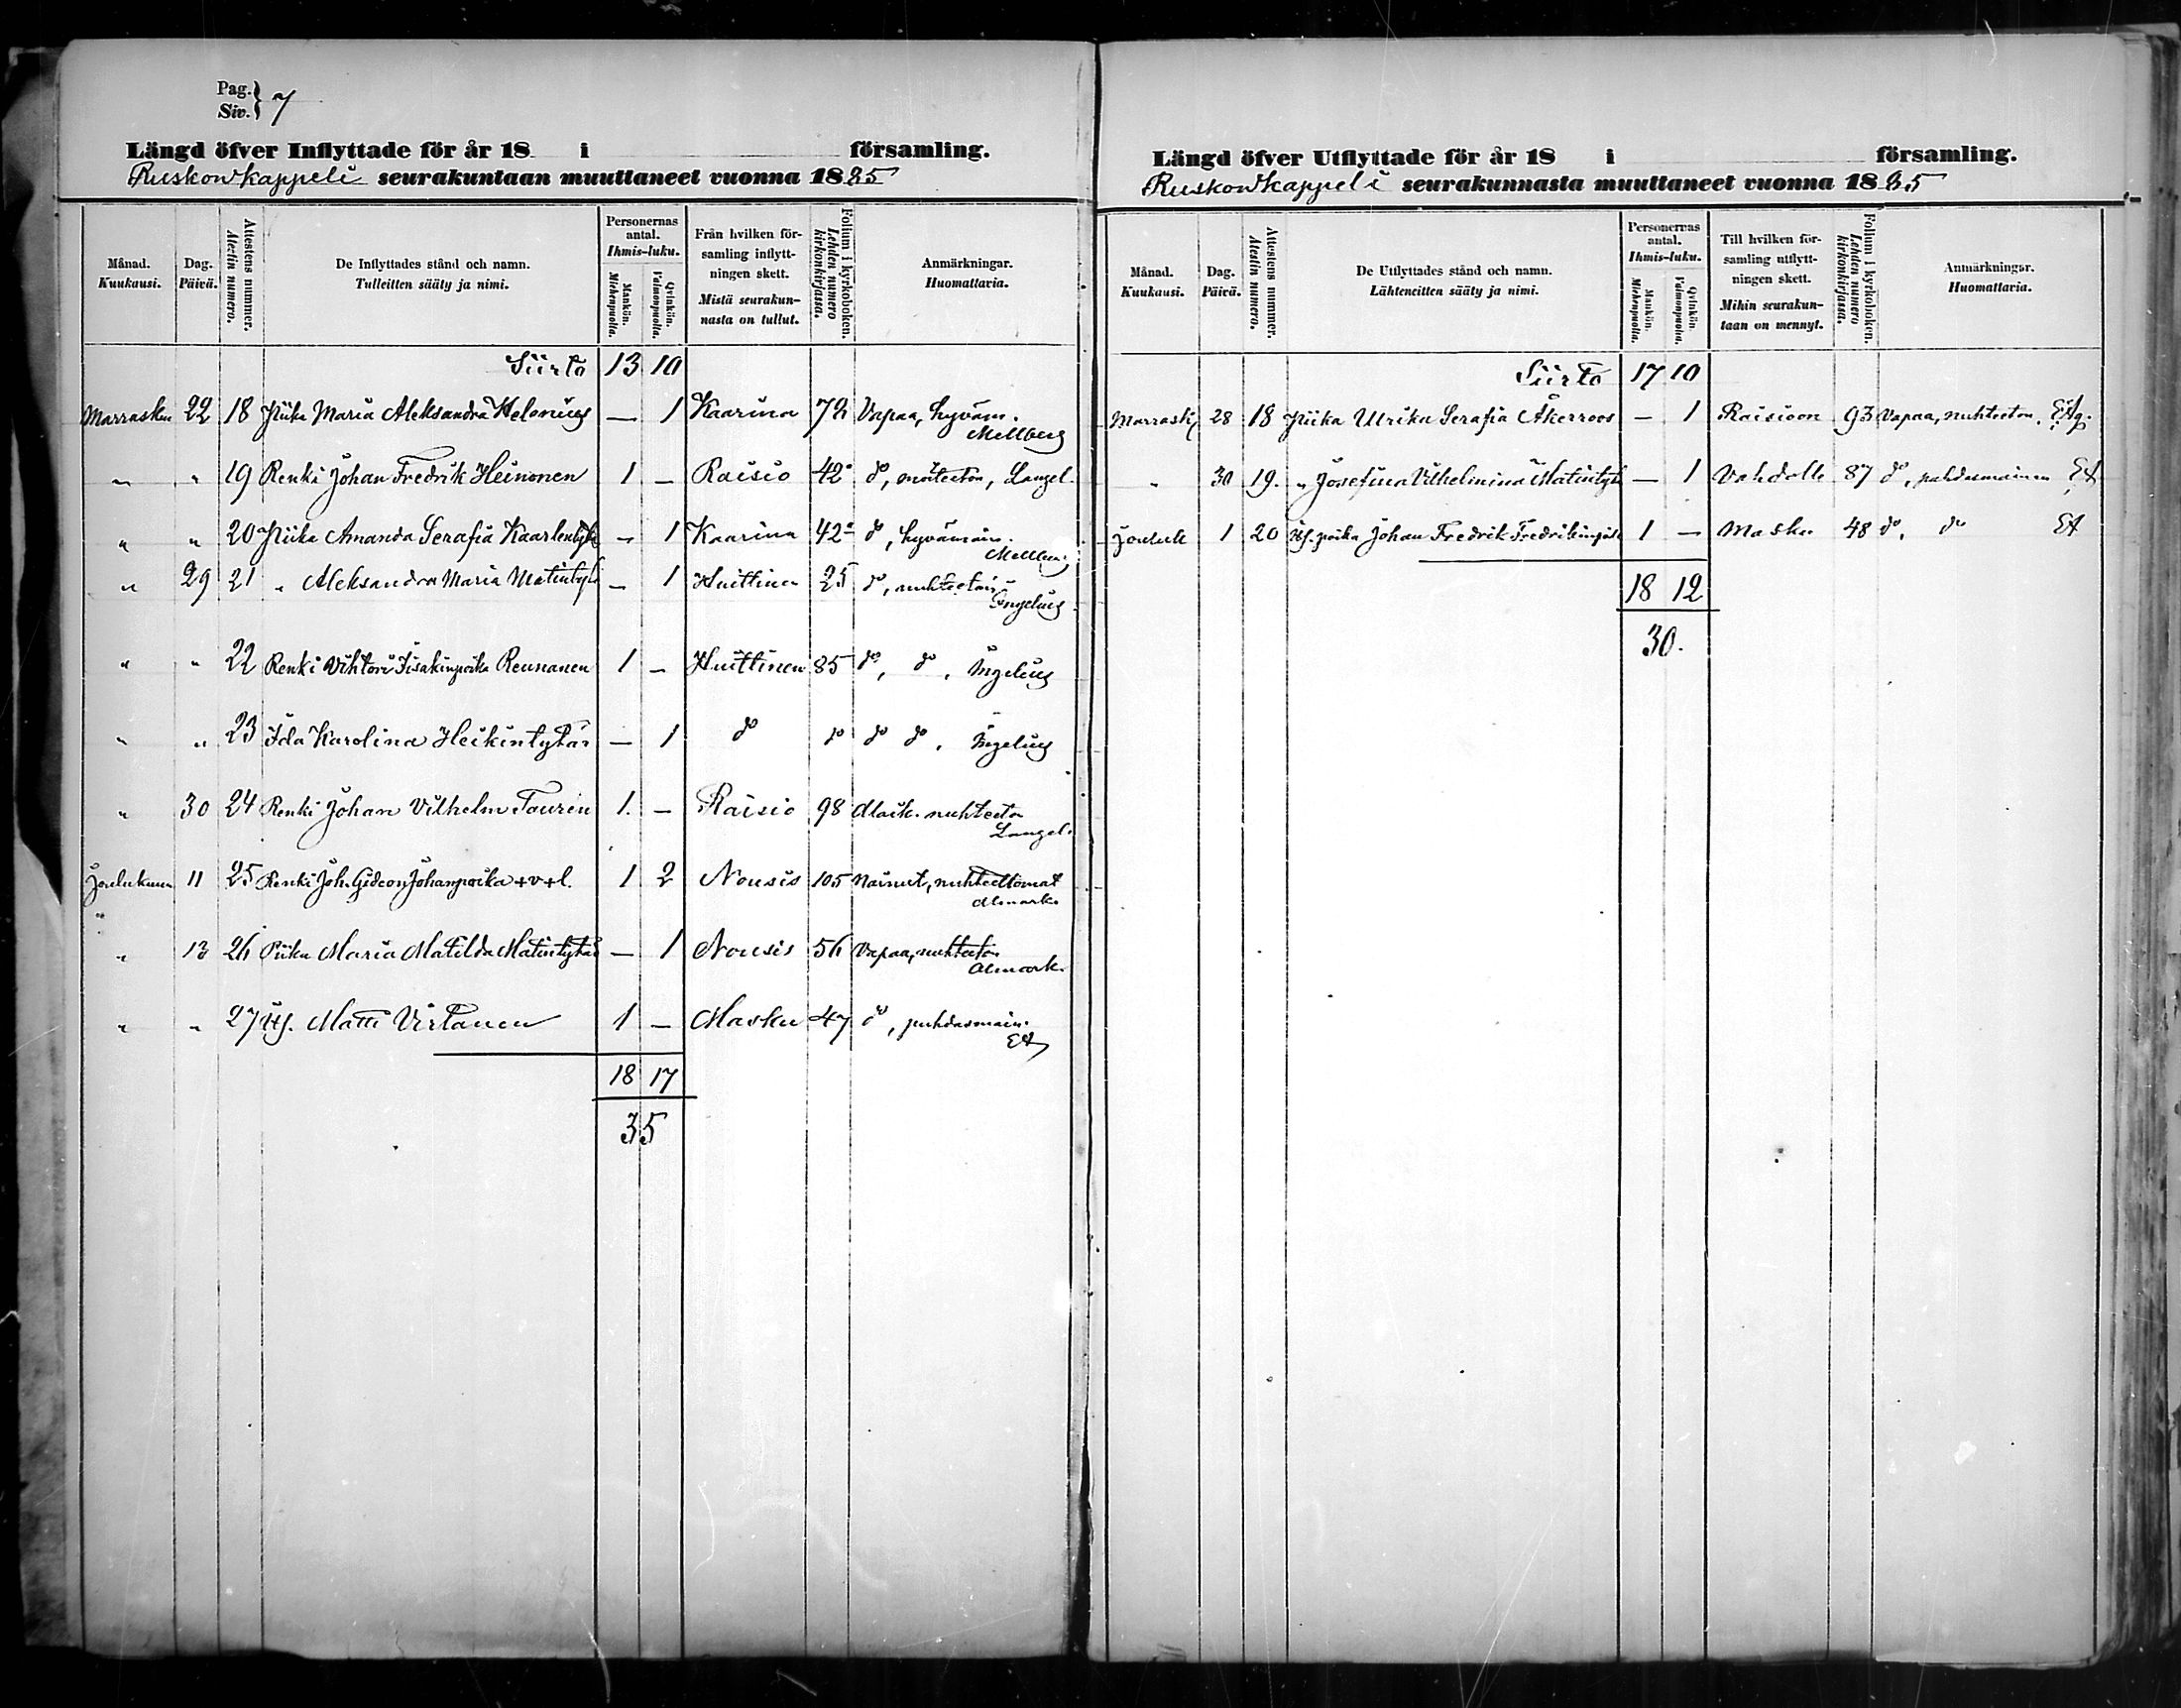 Pag. Siv. } 7
Längd öfver Inflyttade för år 18 i församling.
Ruskon kappeli seurakuntaan muuttaneet vuonna 1885
Månad. Kuukausi. Dag. Päivä. Attestens nummer. Atestin numero. De Inflyttades stånd och namn. Tulleitten sääty ja nimi. Personernas antal. Ihmis-luku. Mankön. Miehenpuolia. Qvinkön. Vaimonpuolia. Från hvilken församling inflyttningen skett. Mistä seurakunnasta on tullut. Folium i kyrkoboken. Lehden numero kirkonkirjassa. Anmärkningar. Huomattavia.
Siirto 13 10
Marrasku 22 18 Piika Maria Aleksandra Helenius — 1 Kaarina 72 Vapaa, hyväm.
Mellberg
" " 19 Renki Johan Fredrik Heinonen 1 — Raisio 42 do, Langel.
" " 20 Piika Amanda Serafia Kaarlentytär — 1 Kaarina 42 do, hyvämain.
" 29 21 " Aleksandra Maria Matintyt — 1 Huittinen 25 do, nuhteetoin
Ingelius
" " 22 Renki Vihtori Iisakinpoika Reunanen 1 — Huittinen 85 do, do, Ingelius
" " 23 Ida Karolina Heikintytär — 1 do do do do, Ingelius
" 30 24 Renki Johan Vilhelm Taurén 1. — Raisio 98 nuhteeton
Langel.
Joulukuu 11 25 Renki Joh. Gideon Johanpoika +v+l. 1 2 Nousis 105 Nainut, nuhteettomat
Almark.
" 13 26 Piika Maria Matilda Matintytär — 1 Nousis 56 Vapaa, nuhteeton
Almark.
" " 27 Itj. Matti Virtanen 1 — Masku 47 do, puhdasmain.
18 17
35
Längd öfver Utflyttade för år 18 i församling.
Ruskon kappeli seurakunnasta muuttaneet vuonna 1885
Månad. Kuukausi. Dag. Päivä. Attestens nummer. Atestin numero. De Utflyttades stånd och namn. Lähteneitten sääty ja nimi. Personernas antal. Ihmis-luku. Mankön. Miehenpuolia. Qvinkön. Vaimonpuolia. Till hvilken församling utflyttningen skett. Mihin seurakuntaan on mennyt. Folium i kyrkoboken. Lehden numero kirkonkirjassa. Anmärkningar. Huomattavia.
Siirto 17 10
Marrask 28 18 Piika Ulrika Serafia Åkerroos — 1 Raisioon 93 Vapaa, nuhteeton.
" 30 19. " Josefina Vilhelmina Matintyt — 1 Vahdolle 87 do, puhdasmainen
Jouluk 1 20 Itj. poika Johan Fredrik Fredrikinpoika 1 — Masku 48 do, do
18 12
30.